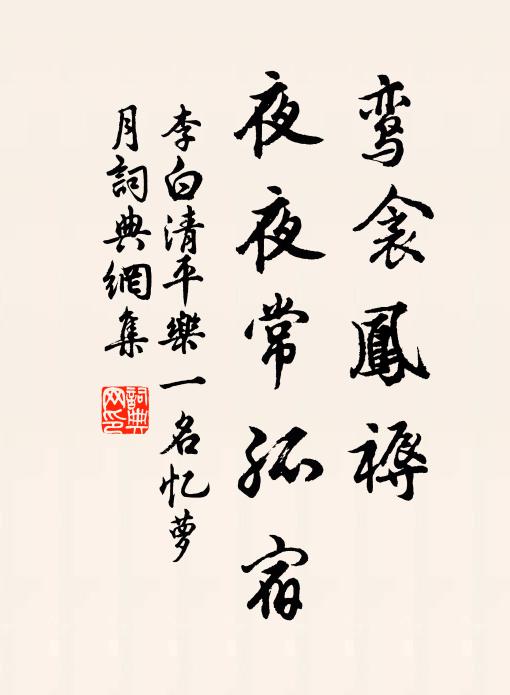 鸾衾鳳褥
夜夜常孤宿
李白清平樂一名忆萝
月詞典網集
詞典网印